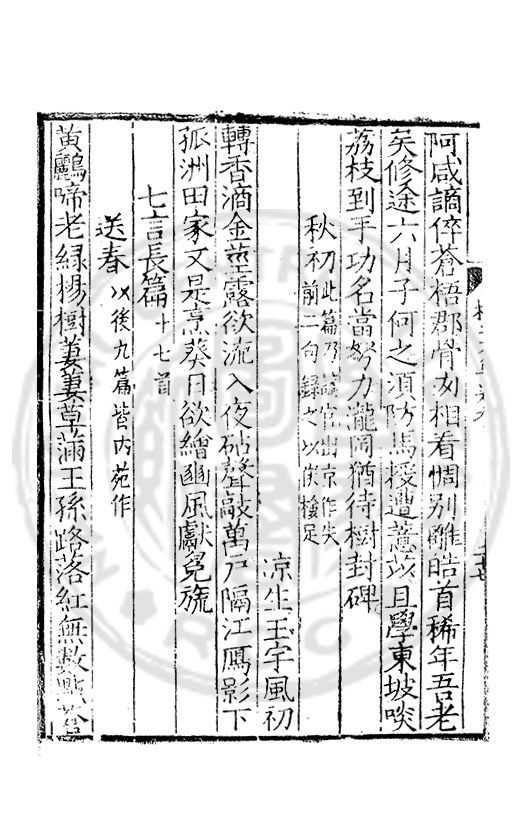 阿咸謫倅蒼梧郡骨肉相看惆別離皓首稀年吾老
矣修途六月子何之須防馬援遭薏苡且學東坡啖
荔枝到手功名當努力瀧岡猶待樹封碑
秋初此篇乃謫官出京作失
前二句錄之以俟檢足
凉生玉宇風初
轉香滴金莖露欲流入夜砧聲敲萬戶隔江鴈影下
孤洲田家又是烹葵日欲繪豳風獻冕旒
七言長篇十七首
送春以後九篇皆内苑作
黃鸝啼老緑楊樹萋萋草滿王孫路落紅無數點蒼